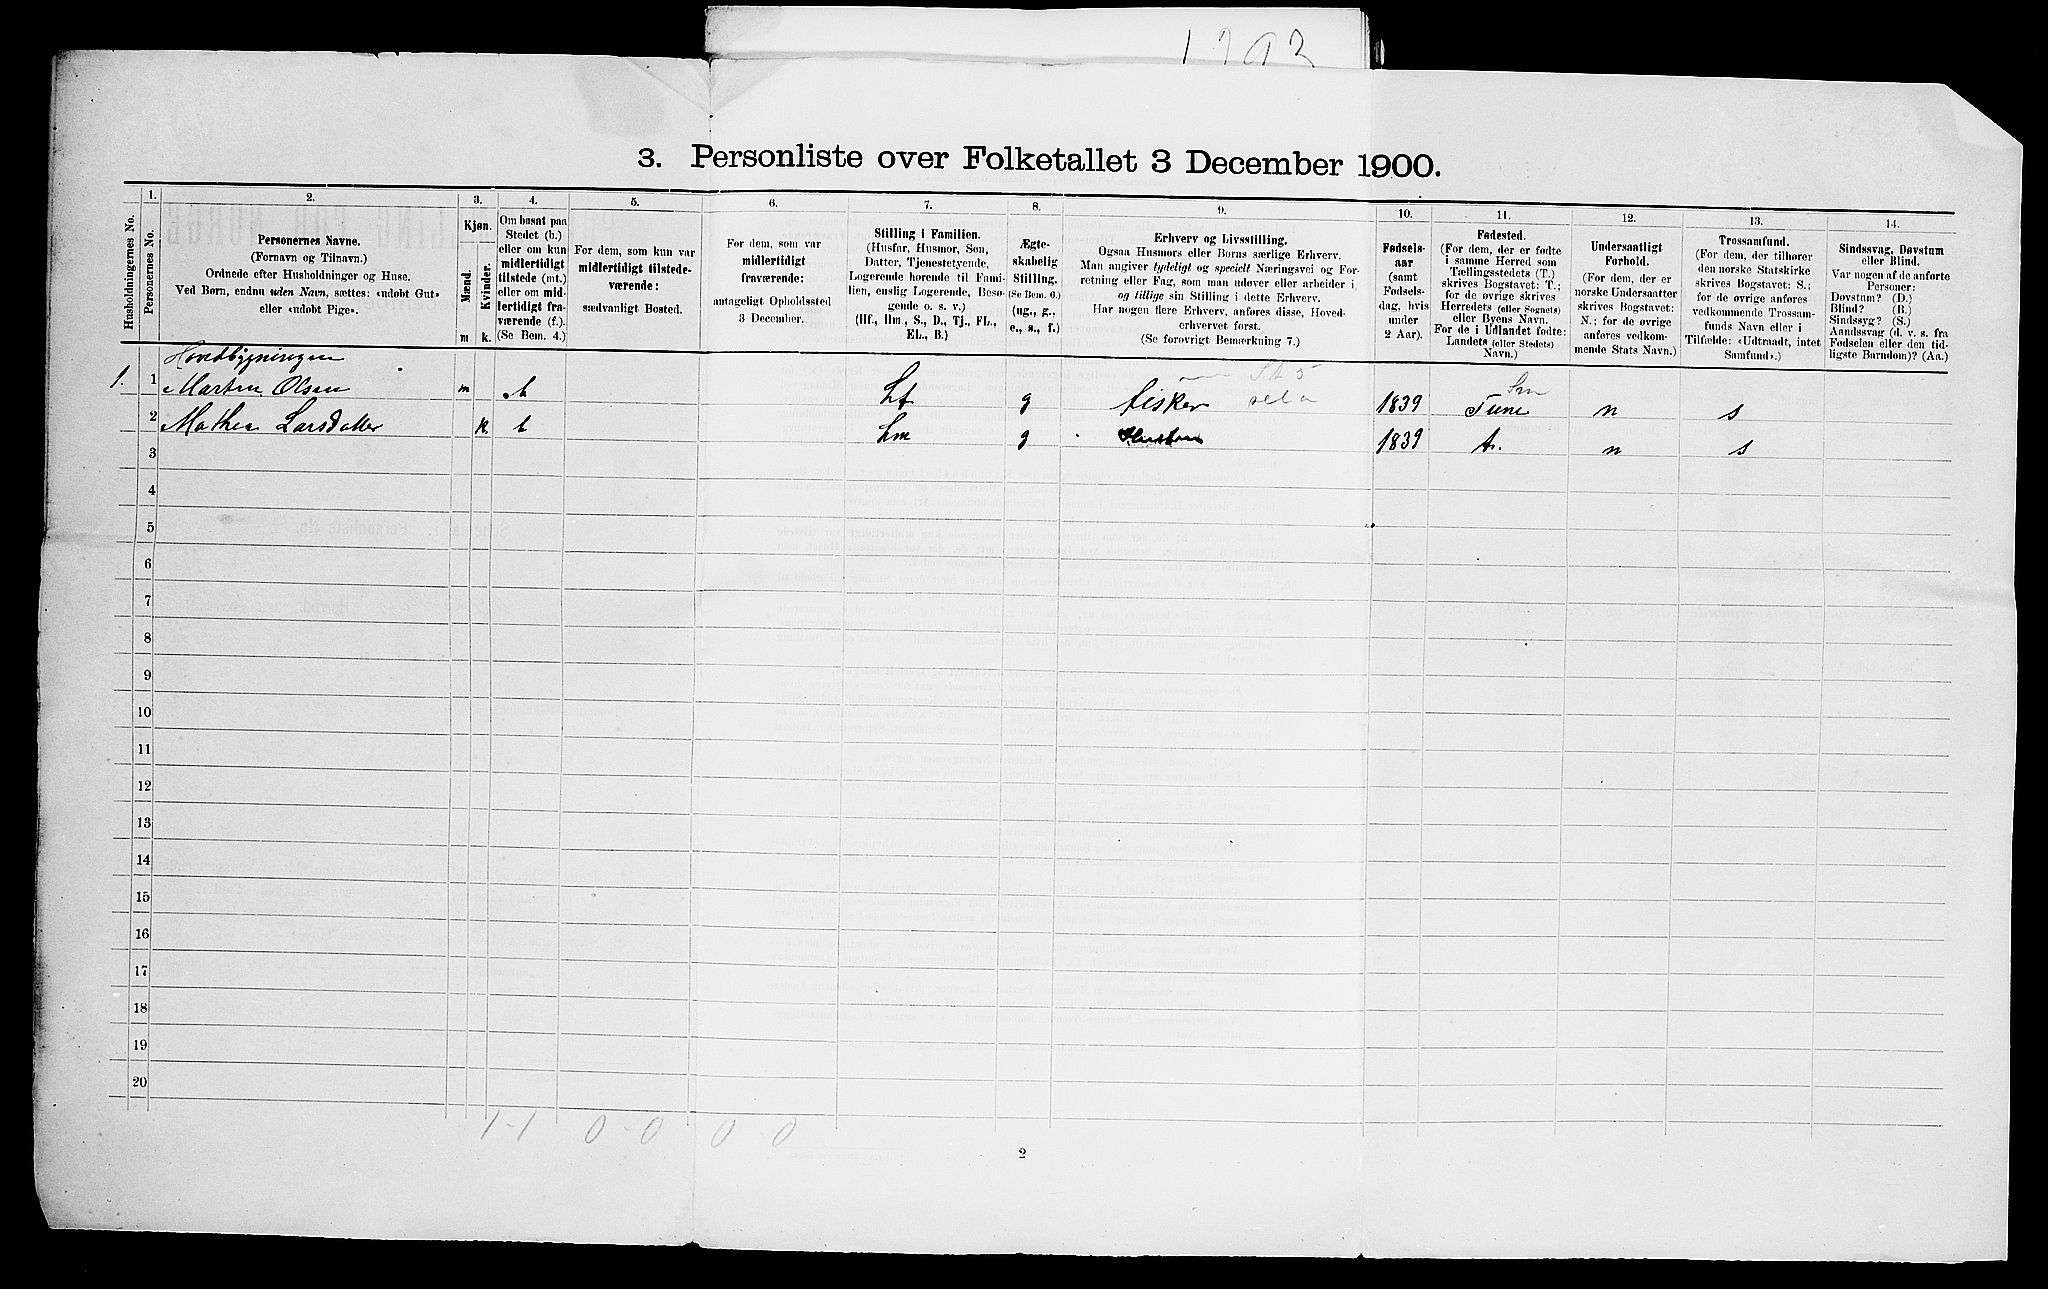 1902
3. Personliste over Folketallet 3 December 1900.
Husholdningernes No.
1.
Personernes No.
2.
Personernes Navne.
(Fornavn og Tilnavn.)
Ordnede efter Husholdninger og Huse.
Ved Børn, endnu uden Navn, sættes: «udøbt Gut»
eller «udøbt Pige».
3.
Kjøn.
Mænd.
Kvinder.
m
k.
4.
Om bosat paa
Stedet (b.)
eller om kun
midlertidigt
tilstede (mt.)
eller om mid-
lertidigt fra-
værende (f.).
(Se Bem. 4.)
5.
For dem, som kun var
midlertidigt tilstede-
værende:
sædvanligt Bosted.
6.
For dem, som var
midlertidigt
fraværende:
antageligt Opholdssted
3 December.
7.
Stilling i Familien.
(Husfar, Husmor, Søn,
Datter, Tjenestetyende,
Logerende hørende til Fami-
lien, enslig Logerende, Besø-
gende o. s. v.)
(Hf., Hm., S., D., Tj., FL.,
EL., B.)
8.
Ægte-
skabelig
Stilling.
(Se Bem. 6.)
(ug., g.,
e., s., f.)
9.
Erhverv og Livsstilling.
Ogsaa Husmors eller Børns særlige Erhverv.
Man angiver tydeligt og specielt Næringsvei og For-
retning eller Fag, som man udøver eller arbeider i,
og tillige sin Stilling i dette Erhverv.
Har nogen flere Erhverv, anføres disse, Hoved-
erhvervet først.
(Se forøvrigt Bemærkning 7.)
10.
Fødsels-
aar
(samt
Fødsels-
dag, hvis
under
2 Aar).
11.
Fødested.
(For dem, der er fødte
i samme Herred som
Tællingsstedets (T.)
skrives Bogstavet: T.;
for de øvrige skrives
Herredets (eller Sognets)
eller Byens Navn.
For de i Udlandet fødte:
Landets (eller Stedets)
Navn.)
12.
Undersaatligt
Forhold.
(For dem, der er
norske Undersaatter
skrives Bogstavet:
N.; for de øvrige
anføres vedkom-
mende Stats Navn.)
13.
Trossamfund.
(For dem, der tilhører
den norske Statskirke
skrives Bogstavet: S.;
for de øvrige anføres
vedkommende Trossam-
funds Navn eller i
Tilfælde: «Udtraadt, intet
Samfund».)
14.
Sindssvag, Døvstum
eller Blind.
Var nogen af de anførte
Personer:
Døvstum? (D.)
Blind? (B.)
Sindssyg? (S.)
Aandssvag (d. v. s. fra
Fødselen eller den tid-
ligste Barndom)? (Aa.)
Hovedbygningen
1. 1 Marten Olsen m b hf g fisker 1839 Tune n s
2 Mathea Larsdatter k. b hm g 1839 t. n s
3
4
5
6
7
8
9
10
11
12
13
14
15
16
17
18
19
20
1-1 0-0 0-0
2